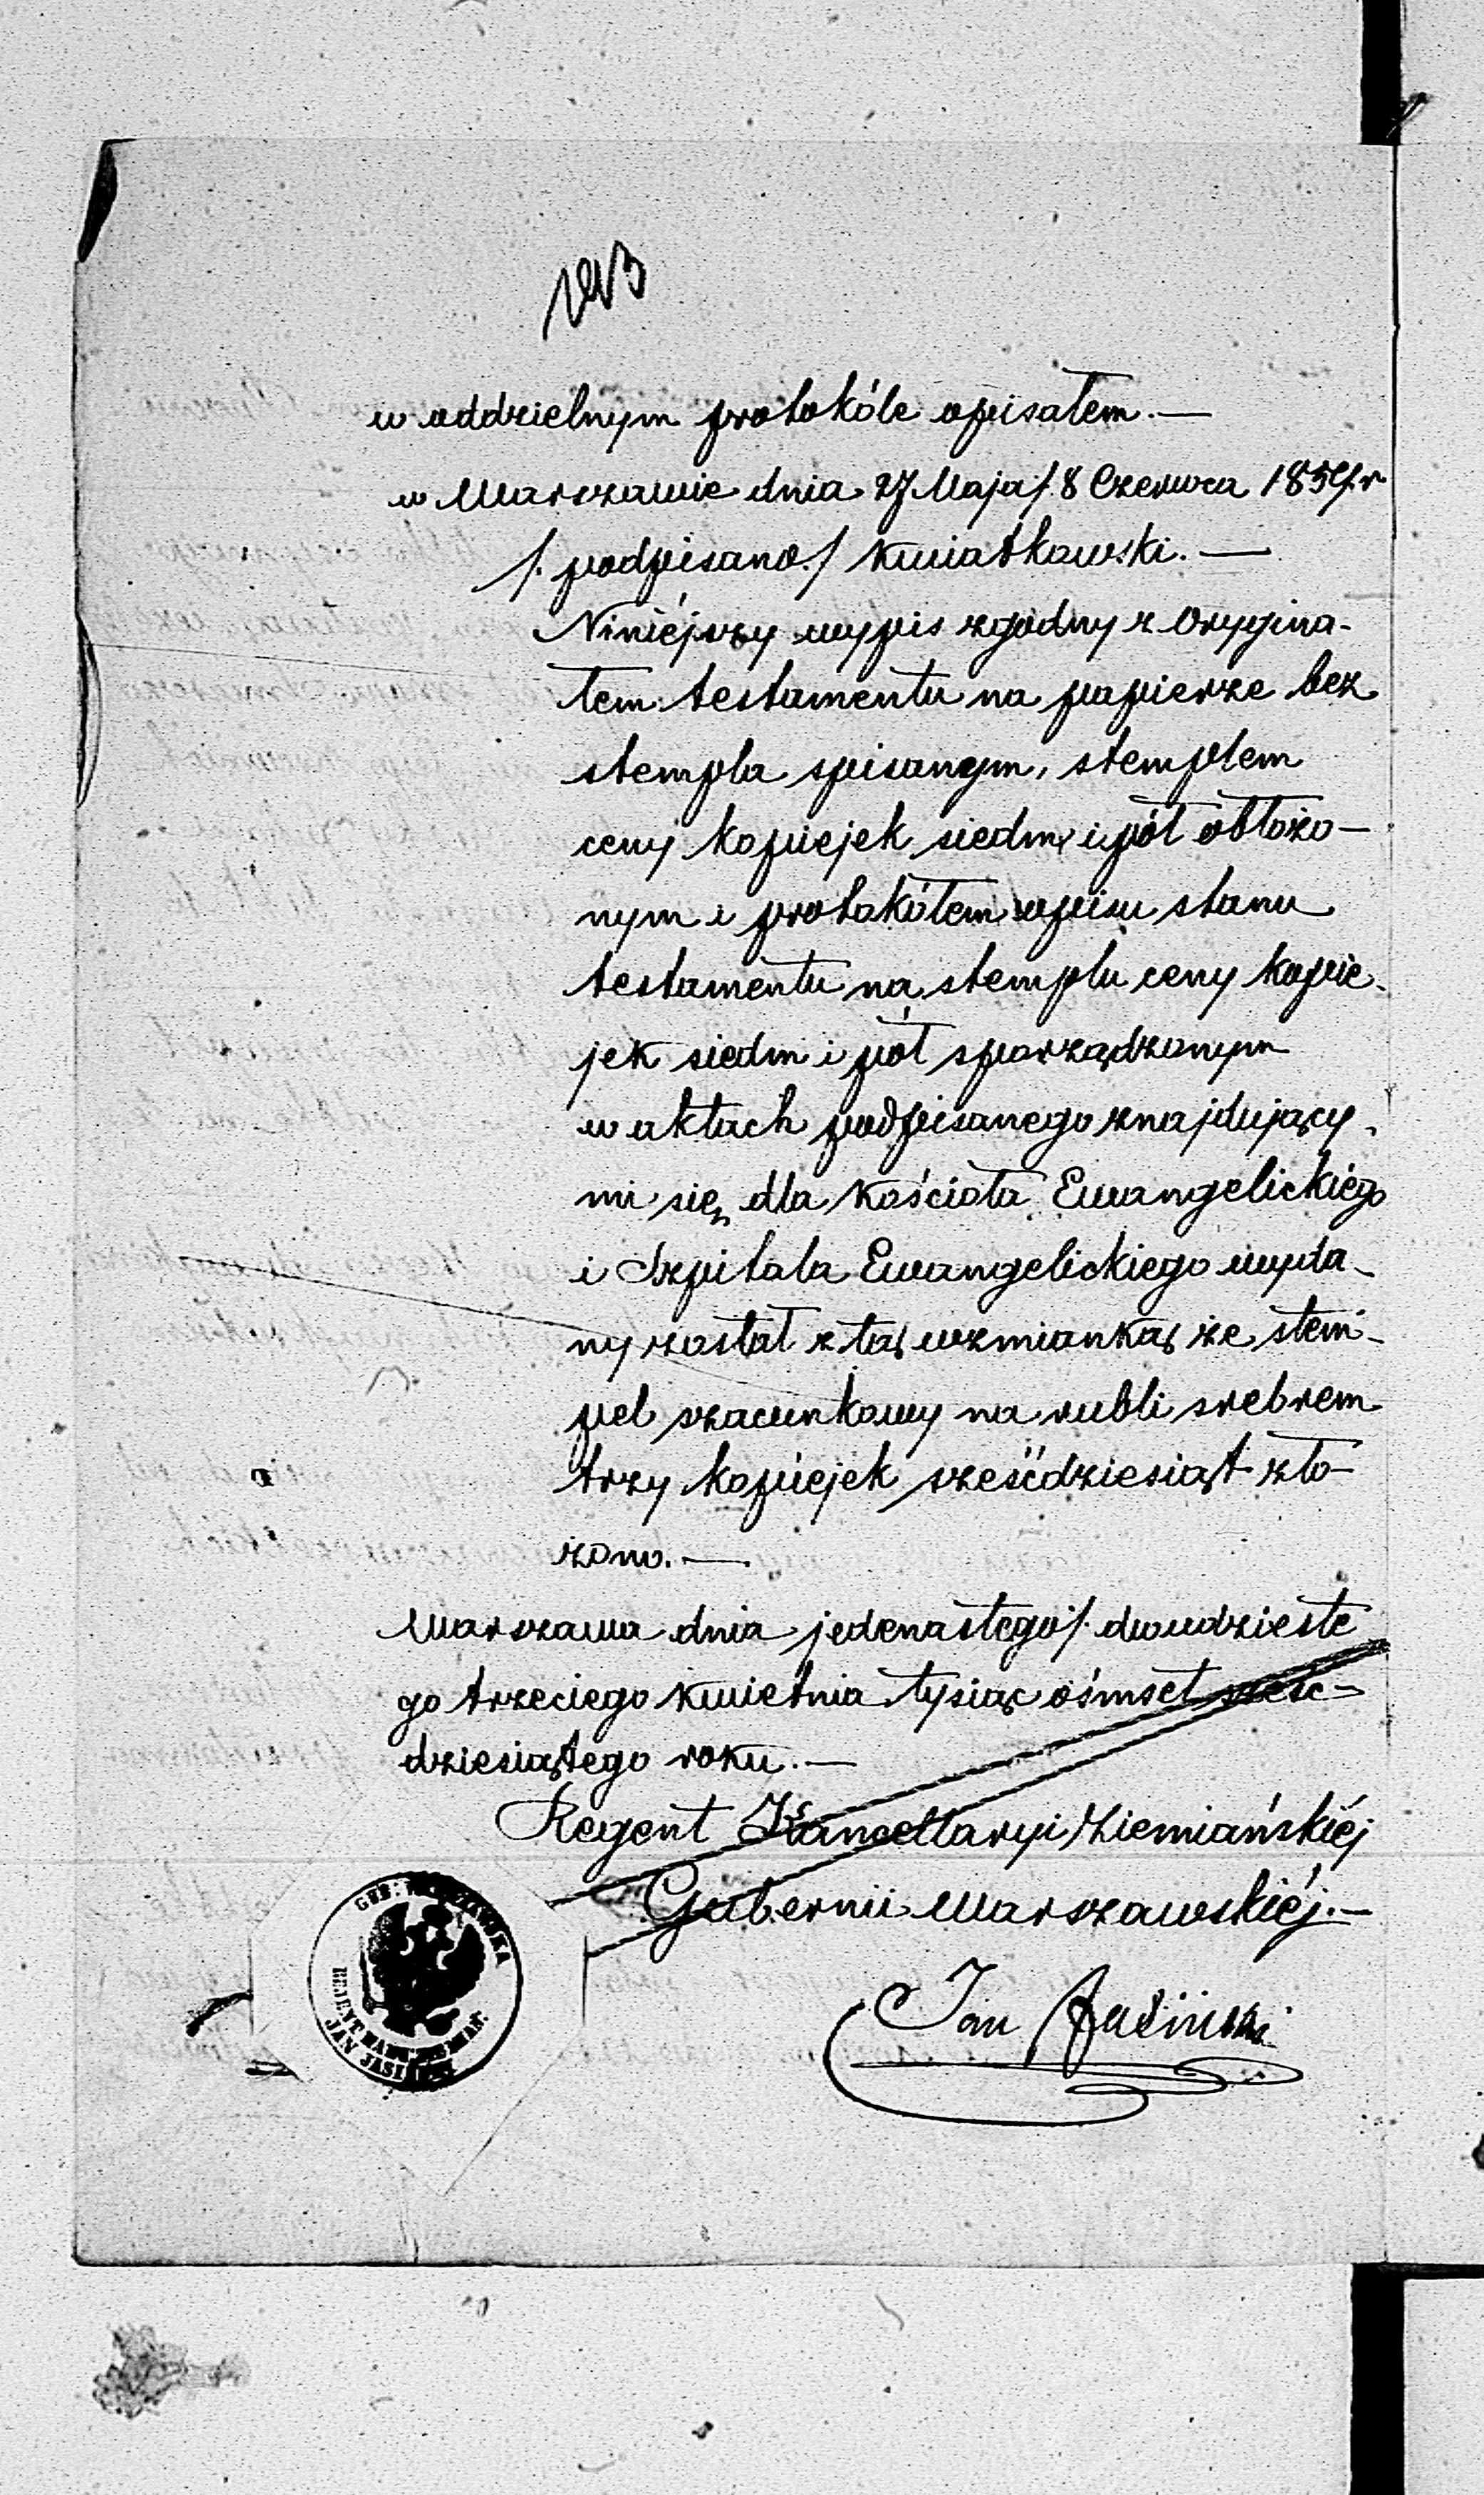 w oddzielnym protokóle opisałem.—
w Warszawie dnia 27 Maja /. 8 Czerwca 1859. r
/. podpisano./ Kwiatkowski.—
Niniéjszy wypis zgodny z Orygina-
łem testamentu na papierze bez
stempla spisanym, stemplem
ceny kopiejek siedm i pół obłożo-
nym i protokółem opisu stanu
testamentu na stemplu ceny kopie-
jek siedm i pół sporządzonym
w aktach podpisanego znajdujący-
mi się, dla Kościoła Ewangelickiégo
i Szpitala Ewangelickiego wyda-
ny został z tą wzmianką że stem-
pel szacunkowy na rubli srebrem
trzy kopiejek sześćdziesiąt zło-
żono.—
Warszawa dnia jedenastego /. dwudzieste
go trzeciego Kwietnia tysiąc ośmset sześć-
dziesiątego roku.—
Regent Kancellaryi Ziemiańskiéj
Gubernii Warszawskiéj.—
Jan Jasiński
GUB: WARSZAWSKA
REJENT KANC: ZIEMIAŃ:
JAN JASIŃSKI